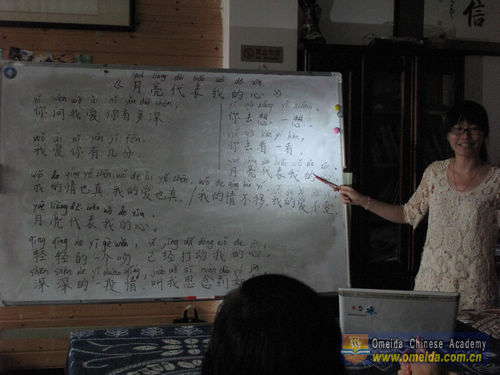 yuè liàng dài biǎo wǒ de xīn
《月亮代表我的心》
nǐ wèn wǒ ài nǐ yǒu duō shēn,
你问我爱你有多深
wǒ ài nǐ yǒu jǐ fēn.
我爱你有几分.
nǐ qù xiǎng yi xiǎng,
你去想一想.
nǐ qù kàn yi kàn,
你去看一看
月亮代表我的
我的情也真,我的爱也真./我的情不移,我的爱不变
yuè liàng dài biǎo wǒ de xīn.
月亮代表我的心。
qīng qīng de yí gè wěn, yǐ jīng dǎ dòng wǒ de xīn,
轻轻的一个吻 已经打动我的心,
shēn shēn de yí duàn qíng, jiào wǒ sī niàn dào rú jīn
深深的一段情,叫我思念到如
信
Omeida Chinese Academy
www.omeida.com.cn